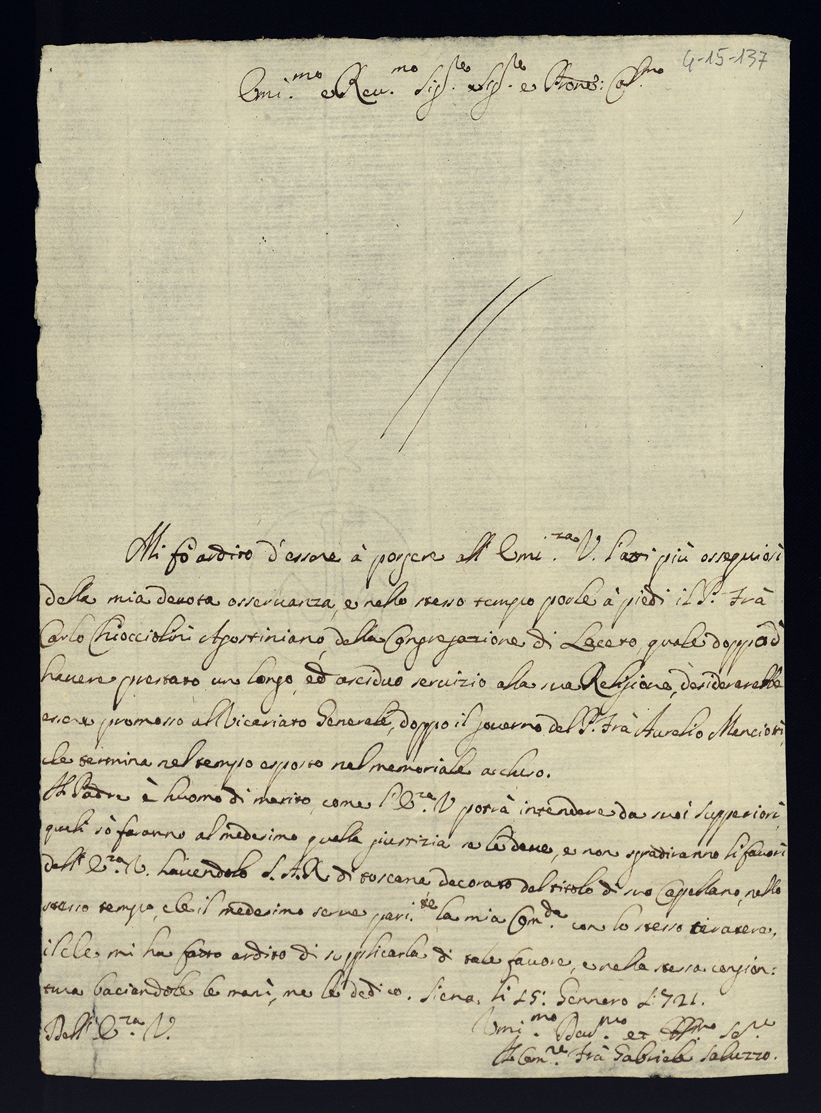 4-15-137
Emi.mo e Reu.mo Sig.re Sig.re e Prone:
Mi fò ardito d'essere à porgere all' Emi.za V. l'atti più ossequiosi
della mia deuota osseruanza, e nello stesso tempo porle à piedi il P. Frà
Carlo Chiocciolini Agostiniano, della Congregazione di Leceto, quale doppo d'
hauere prestato un longo, ed arciduo seruizio alla sua Religione, desiderarebbe
essere promosso al Vicariato Generale, doppo il gouerno del P. Frà Aurelio Menciotti,
che termina nel tempo esposto nel memoriale accluso.
Il Padre è huomo di merito, come l'E.za V potrà intendere da suoi superiori,
quali sò faranno al medesimo quella giustizia se le deue, e non sgradiranno li fauori
dell' E.za V. hauendolo S. A. R di toscana decorato dal titolo di suo Capellano, nello
stesso tempo, che il medesimo serue pari.te la mia Com.da con lo stesso
ilche mi ha fatto ardito di supplicarla di tale fauore, e nella stessa congion:
tura baciandole le mani, me le dedico. Siena li 15: Gennero 1721.
Dell' E.za V.
Emi.mo Reu.mo et se.re
Il Com.re Frà Gabriele Saluzzo.